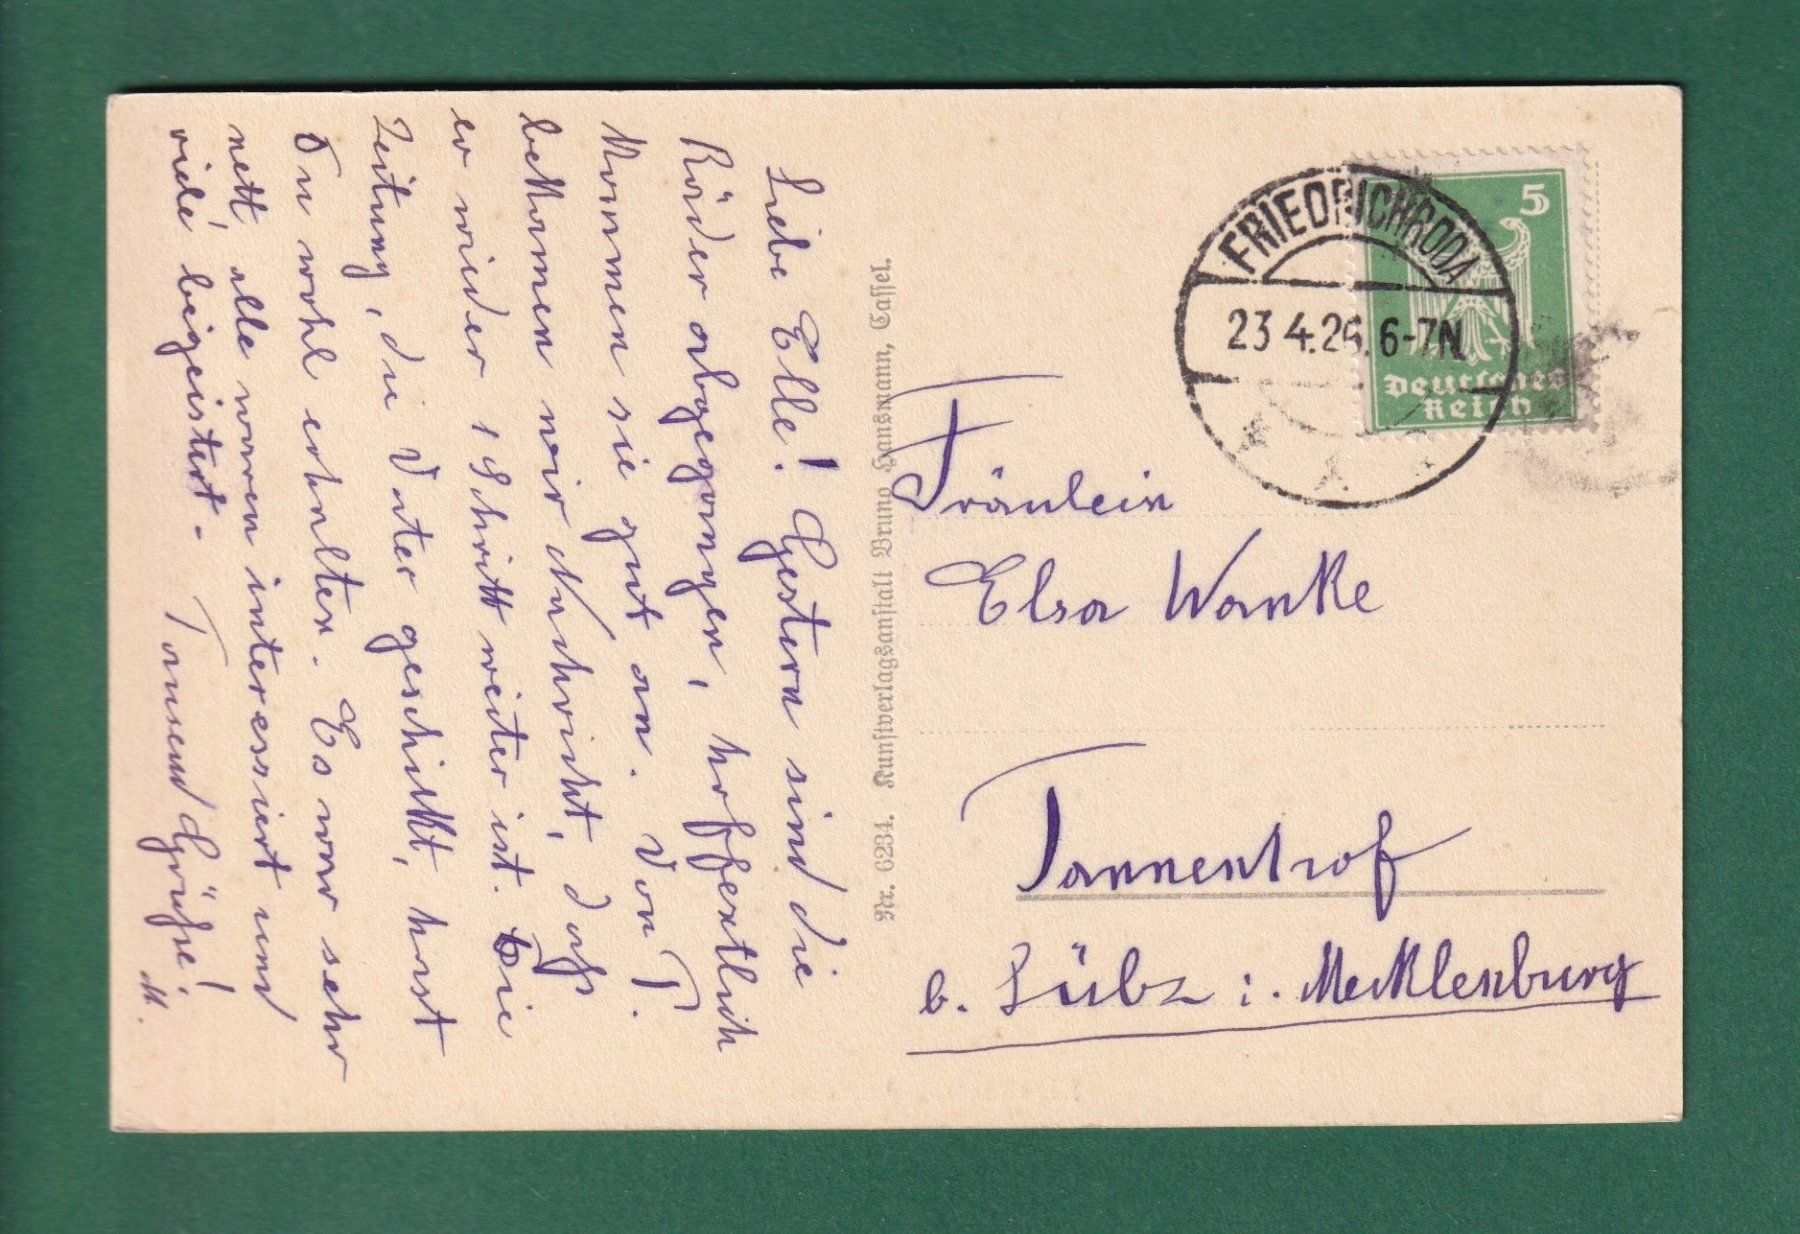 Liebe Elle! Gestern sind die
Räder abgegangen, hoffentlich
kommen sie gut an. Von T.
bekamen wir Nachricht, daß
er wieder 1 Schritt weiter ist. Die
Zeitung, die Vater geschickt, hast
Du wohl erhalten. Es war sehr
nett, alle waren interessiert und
viele begeistert.- Tausend Grüße!
M.
Nr. 6234. Kunstverlagsanstalt Bruno Hansmann, Cassel.
FRIEDRICHRODA
23.4.26. 6-7N
5
Deutsches
Reich
Fräulein
Elsa Wanke
Tannenhof
b. Lübz i. Mecklenburg